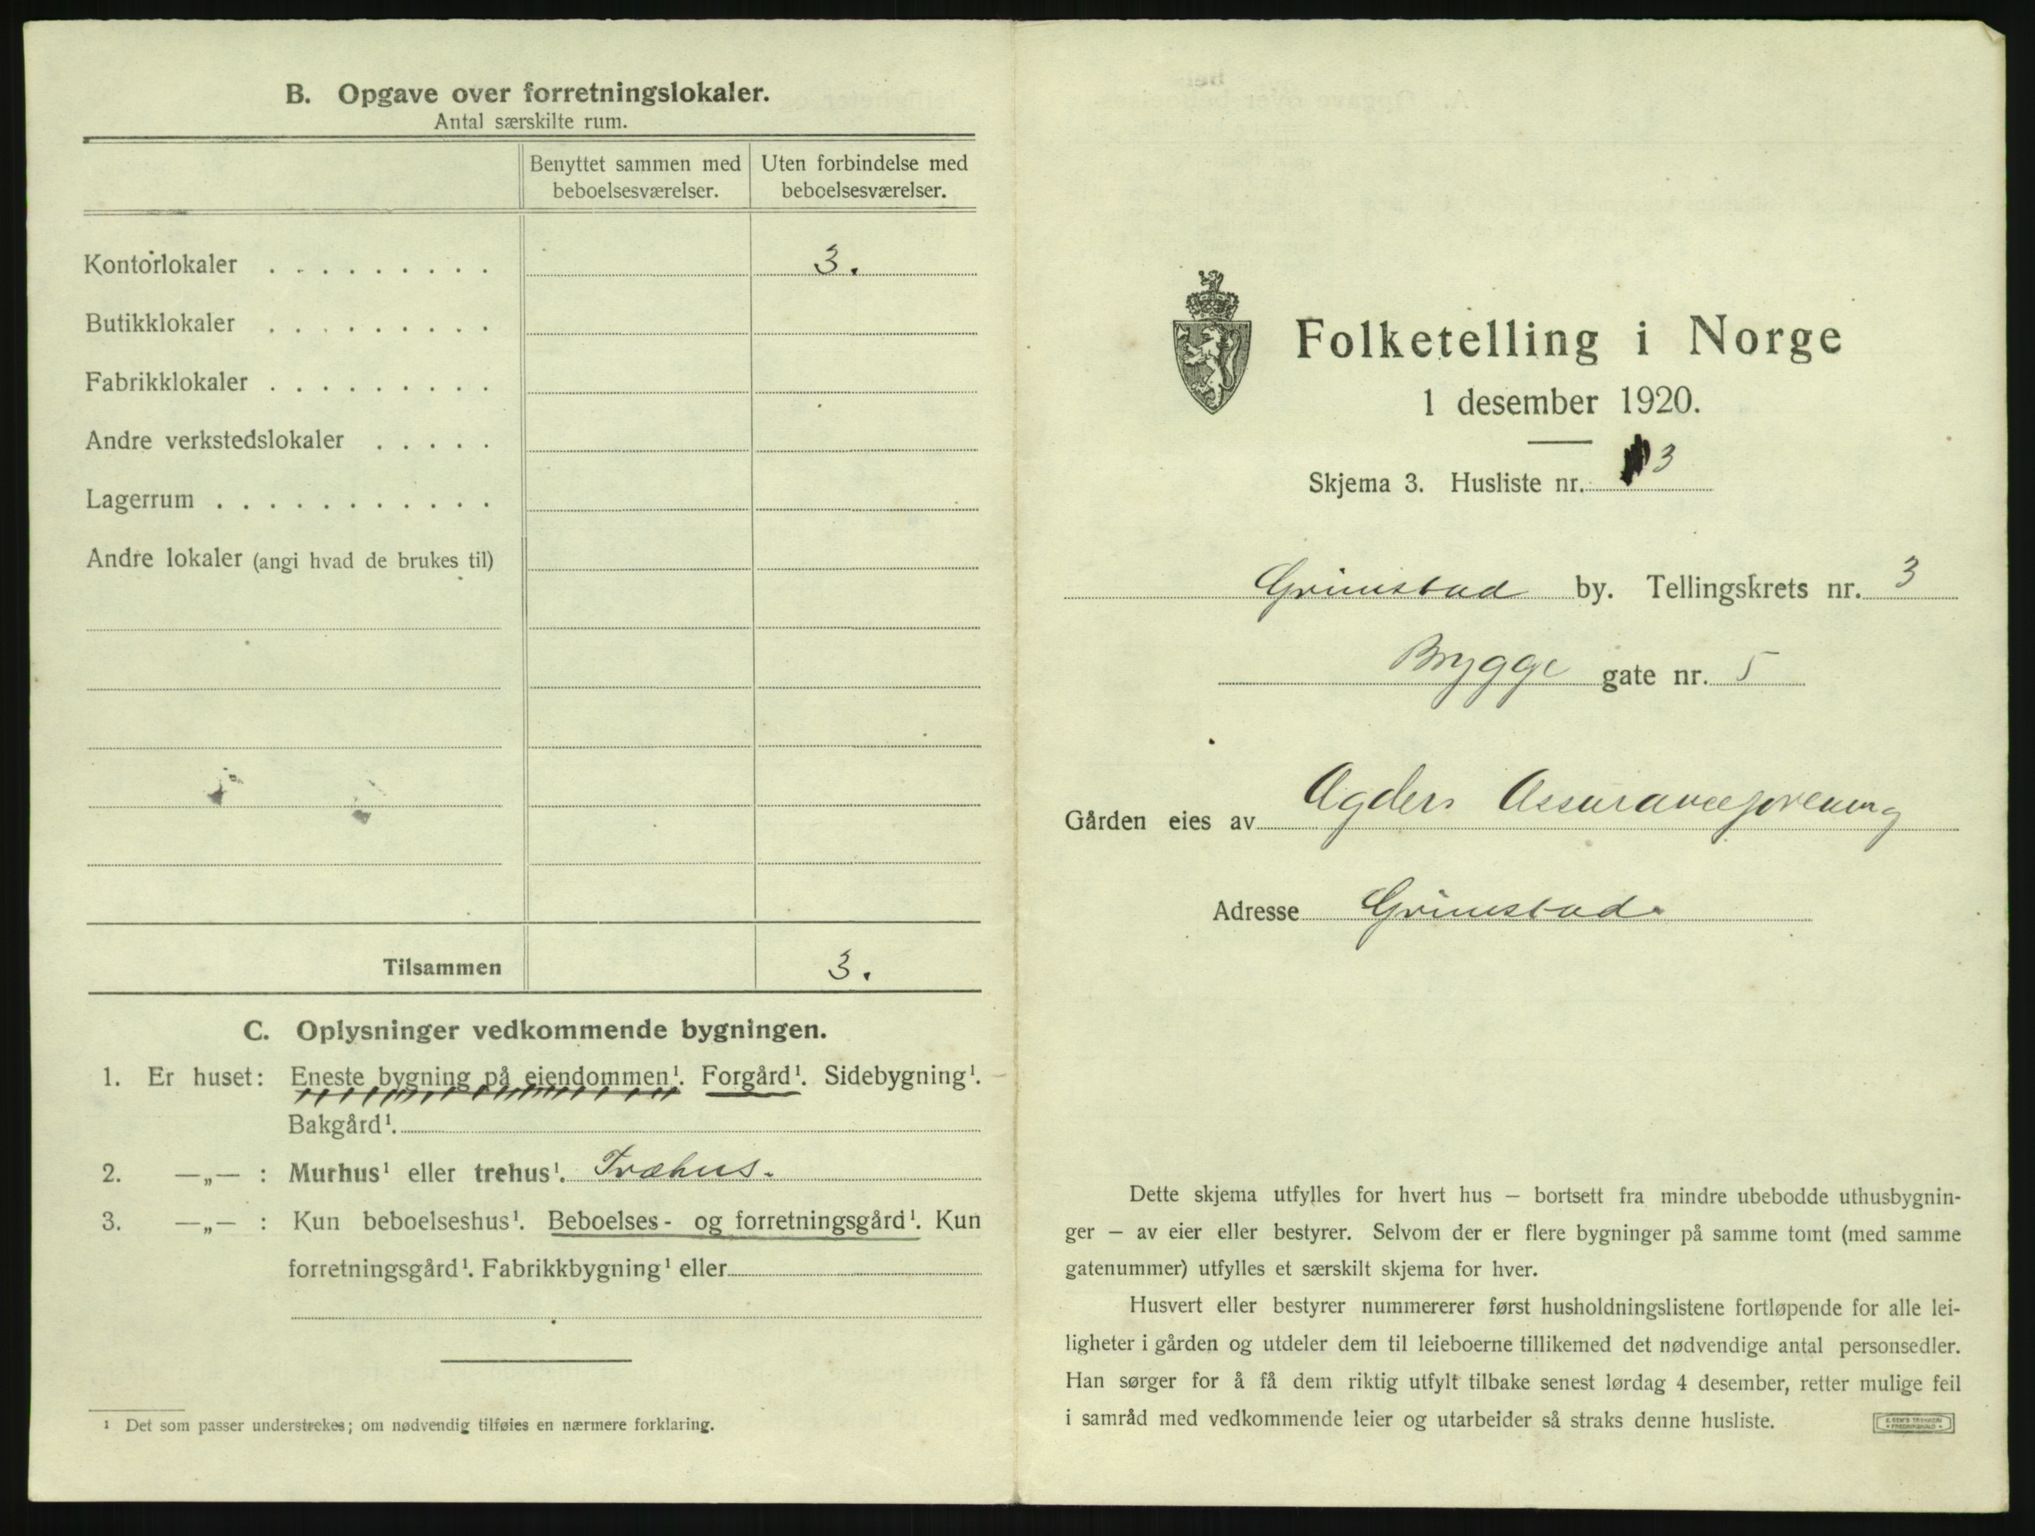 B. Opgave over forretningslokaler.
Antal særskilte rum.
Benyttet sammen med beboelsesværelser.
Uten forbindelse med beboelsesværelser.
Kontorlokaler . . . . . . . . . 3.
Butikklokaler . . . . . . . . .
Fabrikklokaler . . . . . . . . .
Andre verkstedslokaler . . . . .
Lagerrum . . . . . . . . . . .
Andre lokaler (angi hvad de brukes til)
Tilsammen 3.
C. Oplysninger vedkommende bygningen.
1. Er huset: Eneste bygning på eiendommen¹. Forgård¹. Sidebygning¹.
Bakgård¹.
2. —„— : Murhus¹ eller trehus¹. Træhus.
3. —„— : Kun beboelseshus¹. Beboelses- og forretningsgård¹. Kun
forretningsgård¹. Fabrikkbygning¹ eller
¹ Det som passer understrekes; om nødvendig tilføies en nærmere forklaring.
Folketelling i Norge
1 desember 1920.
Skjema 3. Husliste nr. 3
Grimstad by. Tellingskrets nr. 3
Brygge gate nr. 5
Gården eies av Agders Assuranceforening
Adresse Grimstad.
Dette skjema utfylles for hvert hus – bortsett fra mindre ubebodde uthusbygnin-
ger – av eier eller bestyrer. Selvom der er flere bygninger på samme tomt (med samme
gatenummer) utfylles et særskilt skjema for hver.
Husvert eller bestyrer nummererer først husholdningslistene fortløpende for alle lei-
ligheter i gården og utdeler dem til leieboerne tillikemed det nødvendige antal personsedler.
Han sørger for å få dem riktig utfylt tilbake senest lørdag 4 desember, retter mulige feil
i samråd med vedkommende leier og utarbeider så straks denne husliste.